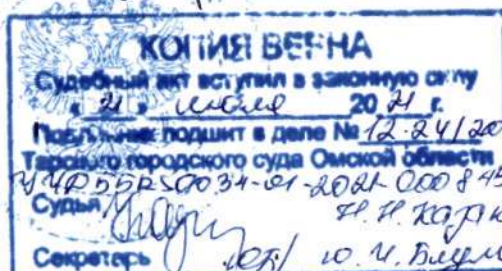 КОПИЯ ВЕРНА
Судебный акт вступил в законную силу
« 21 » июля 20 21 г.
Подлинник подшит в деле № 12-24/20
Тарского городского суда Омской области
УИД 55RS0034-01-2021-000845
Судья Н. Н.
Секретарь Ю. И.